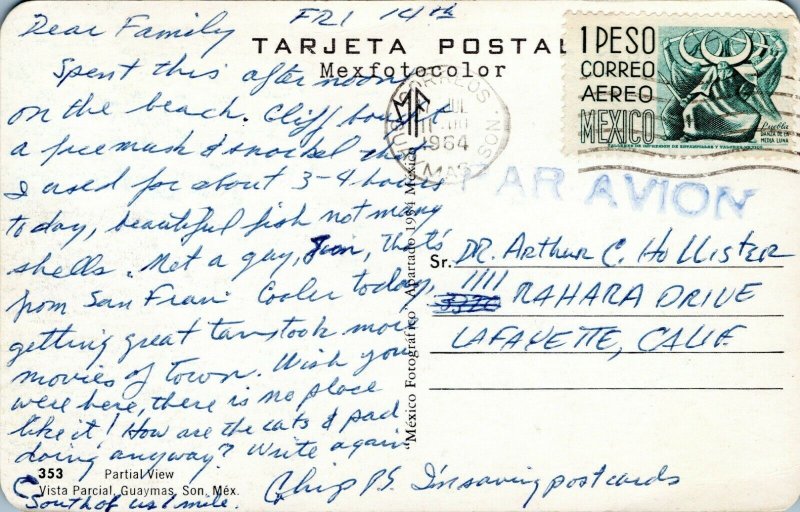 Dear Family FRI 14th
TARJETA POSTAL
Mexfotocolor
Spent this afternoon
on the beach. Cliff bought
a facemask & snorkel that
I used for about 3-4 hours
today, beautiful fish not many
shells. Met a guy, Jim, that's
from San Fran. Cooler today,
getting great tan took more
movies of town. Wish you
were here, there is no place
like it! How are the cats & pad
doing anyway? Write again
Chip P.S. I'm saving postcards
353 Partial View
Vista Parcial, Guaymas, Son. Méx.
South of us 1 mile.
"México Fotográfico" Apartado 1984 México
MF
CORREOS
JUL
1964
SON.
1 PESO
CORREO
AEREO
MEXICO
Puebla
DANZA DE LA
MEDIA LUNA
TALLERES DE IMPRESION DE ESTAMPILLAS Y VALORES MEXICO
PAR AVION
Sr. DR. Arthur C. Hollister
1111
3320 RAHARA DRIVE
LAFAYETTE, CALIF.